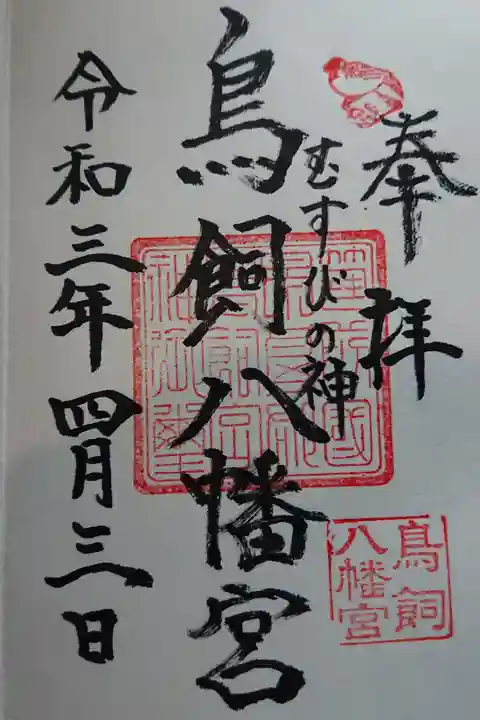 奉拝
むすびの神
鳥飼八幡宮
令和三年四月三日
鳥飼
八幡宮